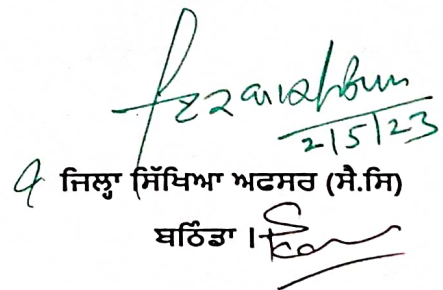 2/5/23
ਜਿਲ੍ਹਾ ਸਿੱਖਿਆ ਅਫਸਰ (ਸੈ.ਸਿ)
ਬਠਿੰਡਾ ।